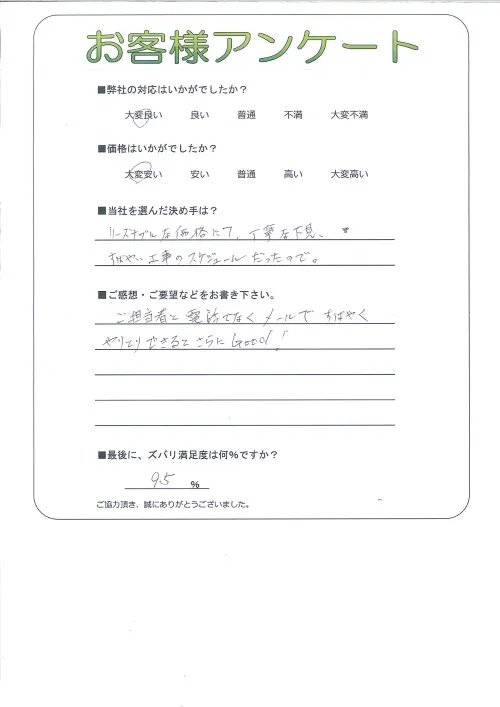 お客様アンケート
■弊社の対応はいかがでしたか？
大変良い 良い 普通 不満 大変不満
■価格はいかがでしたか？
大変安い 安い 普通 高い 大変高い
■当社を選んだ決め手は？
リーズナブルな価格にて、丁寧な下見、
すばやい工事のスケジュールだったので。
■ご感想・ご要望などをお書き下さい。
ご担当者と電話でなくメールですばやく
やりとりできるとさらにGood!
■最後に、ズバリ満足度は何%ですか？
95 %
ご協力頂き、誠にありがとうございました。